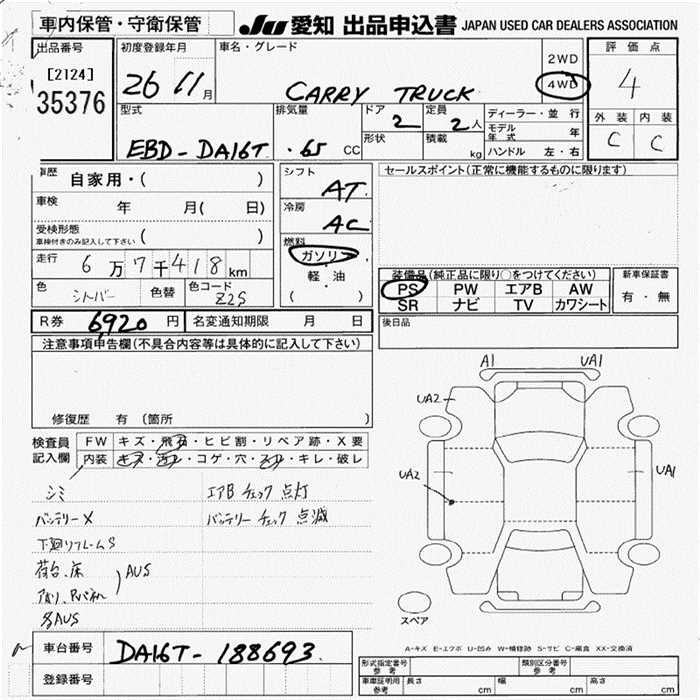 車内保管・守衛保管
JU 愛知 出品申込書 JAPAN USED CAR DEALERS ASSOCIATION
出品番号
[2124]
35376
初度登録年月
26 11月
車名・グレード
CARRY TRUCK
2WD
4WD
評価点
4
外装 内装
C C
型式
EBD-DA16T
排気量
.65 CC
ドア
2
形状
定員
2人
積載
kg
ディーラー・並行
モデル年式 年
ハンドル 左・右
歴 自家用・( )
車検 年 月( 日)
受検形態
車検付きのみ記入して下さい ( )
走行 6万7千418km
色 シルバー 色替 色コード Z2S
シフト
AT
冷房
AC
燃料
ガソリン
軽・油
( )
セールスポイント(正常に機能するものに限ります)
装備品(純正品に限り○をつけてください)
PS PW エアB AW
SR ナビ TV カワシート
新車保証書
有・無
R券 6920円 名変通知期限 月 日
後日品
注意事項申告欄(不具合内容等は具体的に記入して下さい)
修復歴 有 (箇所 )
検査員記入欄
FW キズ・飛石・ヒビ割・リペア跡・X要
内装 キズ・汚レ・コゲ・穴・スレ・キレ・破レ
シミ エアBチェック点灯
バッテリーX バッテリーチェック点滅
下廻りフレームS
荷台、床 AUS
アオリ、Rパネル
多AUS
A1 UA1
UA2
UA2
UA1
スペア
A-キズ E-エクボ U-凹み W-補修跡 S-サビ C-腐食 XX-交換済
車台番号 DA16T-188693
登録番号
形式指定番号 参考
類別区分番号 参考
車庫証明用 参考 長さ cm 幅 cm 高さ cm